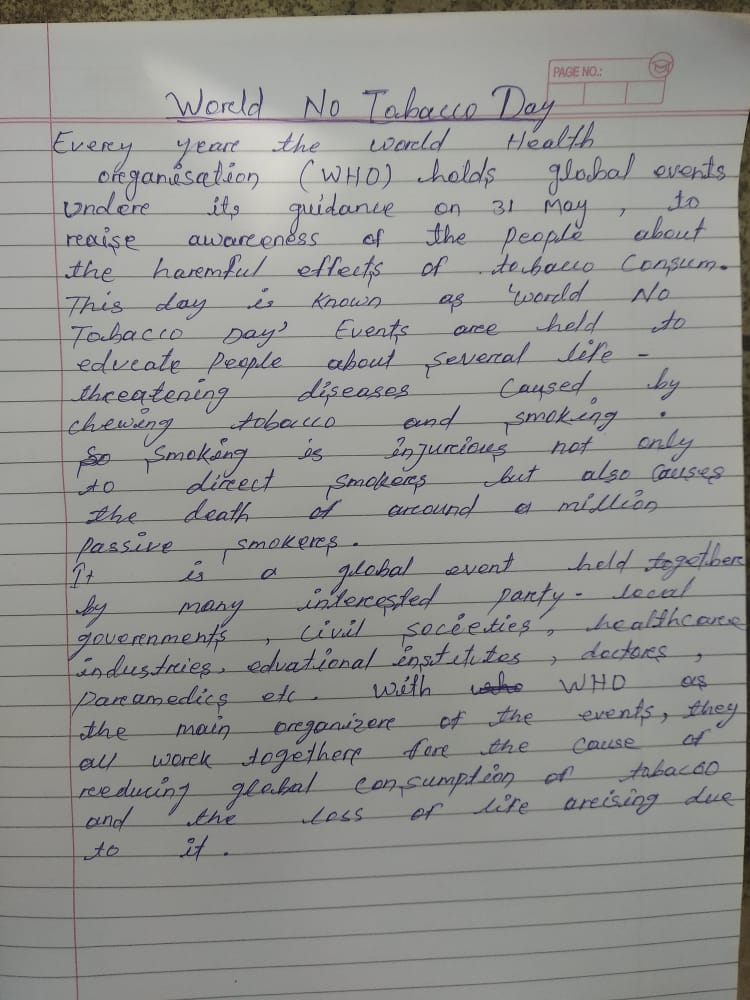 PAGE NO.:
World No Tabacco Day
Every year the world Health
organisation (WHO) holds global events
Undore its guidance on 31 May, to
reaise awareness of the people about
the harmful effects of tobacco Consum.
This day is known as 'World No
Tobacco Day' Events are held to
educate people about several life -
threatening diseases caused by
chewing tobacco and smoking .
So Smoking is injurcious not only
to direct smokers but also causes
the death of around a million
passive smokers.
It is a global event held together
by many interested party - local
governments, civil soceeties, healthcare
industries, eduational institutes, doctors,
Paramedics etc. With who WHO as
the main organizer of the events, they
all work together for the cause of
reducing global consumption of tobacco
and the loss of life arising due
to it.